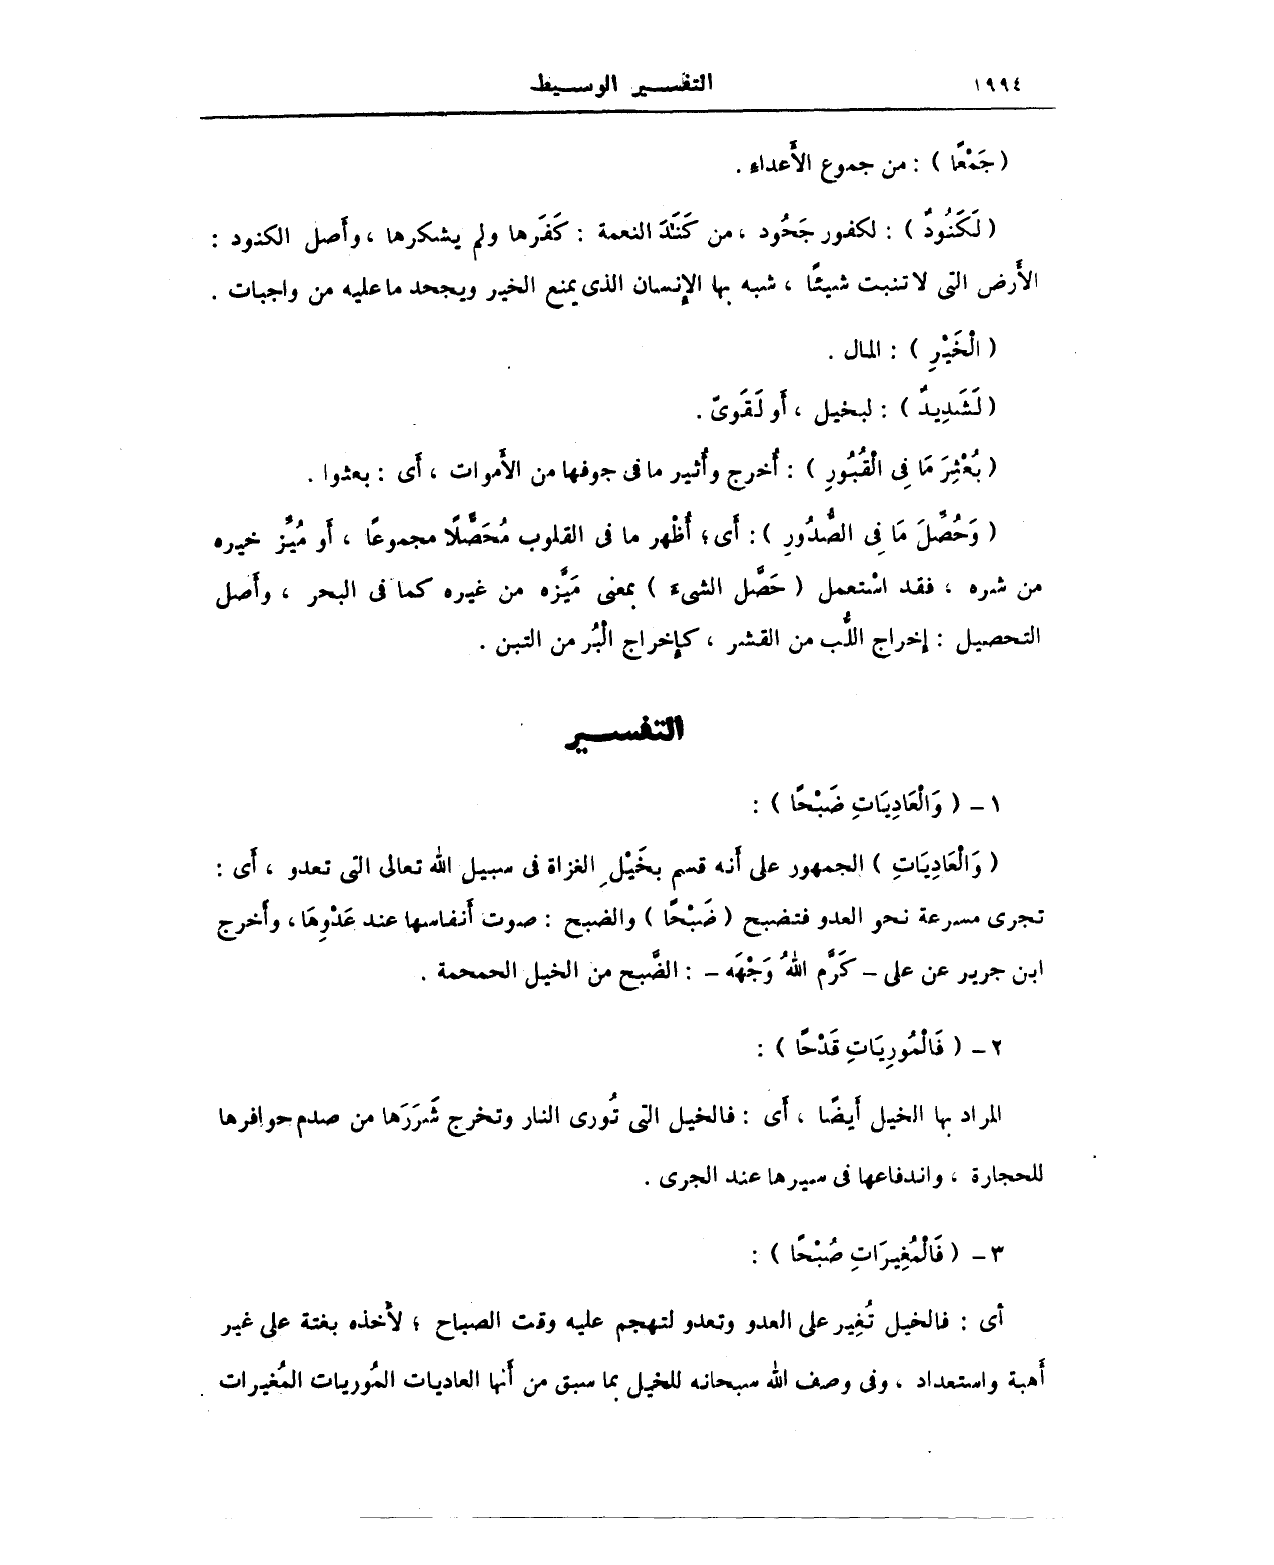 ١٩٩٤ التفسير الوسيط
( جَمْعًا ) : من جموع الأَعداء .
( لَكَنُودٌ ) : لكفور جَحُود ، من كَنَدَ النعمة : كَفَرها ولم يشكرها ، وأَصل الكنود :
الأَرض التى لا تنبت شيئًا ، شبه بها الإِنسان الذى يمنع الخير ويجحد ما عليه من واجبات .
( الْخَيْرِ ) : المال .
( لَشَدِيدٌ ) : لبخيل ، أَو لَقَوىّ .
( بُعْثِرَ مَا فِى الْقُبُورِ ) : أُخرج وأُثير ما فى جوفها من الأَموات ، أَى : بعثوا .
( وَحُصِّلَ مَا فِى الصُّدُورِ ) : أَى ؛ أُظْهر ما فى القلوب مُحَصَّلًا مجموعًا ، أَو مُيِّز خيره
من شره ، فقد اسْتعمل ( حَصَّل الشىء ) بمعنى مَيَّزه من غيره كما فى البحر ، وأَصل
التحصيل : إخراج اللُّب من القشر ، كإِخراج الْبُر من التبن .
التفسير
١ – ( وَالْعَادِيَاتِ ضَبْحًا ) :
( وَالْعَادِيَاتِ ) الجمهور على أَنه قسم بخَيْلِ الغزاة فى سبيل الله تعالى التى تعدو ، أَى :
تجرى مسرعة نحو العدو فتضبح ( ضَبْحًا ) والضبح : صوت أَنفاسها عند عَدْوِهَا ، وأَخرج
ابن جرير عن على – كَرَّم اللهُ وَجْهَه – : الضَّبح من الخيل الحمحمة .
٢ – ( فَالْمُورِيَاتِ قَدْحًا ) :
المراد بها الخيل أَيضًا ، أَى : فالخيل التى تُورى النار وتخرج شَرَرَها من صدم حوافرها
للحجارة ، واندفاعها فى سيرها عند الجرى .
٣ – ( فَالْمُغِيرَاتِ صُبْحًا ) :
أى : فالخيل تُغِير على العدو وتعدو لتهجم عليه وقت الصباح ؛ لأَخذه بغتة على غير
أَهبة واستعداد ، وفى وصف الله سبحانه للخيل بما سبق من أَنها العاديات المُوريات المُغيرات